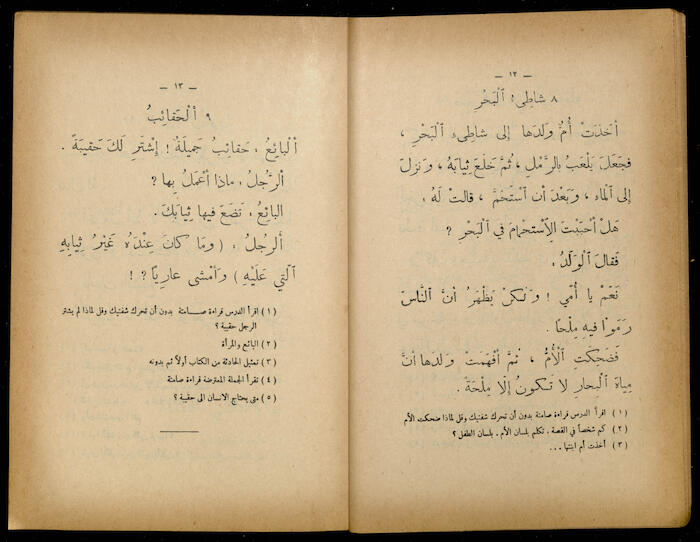 — ١٢ —
٨ شاطِىءُ ٱلْبَحْرِ
أَخَذَتْ أُمٌّ وَلَدَها إِلى شاطِىءِ ٱلْبَحْرِ ،
فَجَعَلَ يَلْعَبُ بِالرَّمْلِ ، ثُمَّ خَلَعَ ثِيابَهُ ، وَنَزَلَ
إِلى ٱلْماءِ ، وَبَعْدَ أَن ٱسْتَحَمَّ ، قالَتْ لَهُ :
هَلْ أَحْبَبْتَ الِٱسْتِحْمامَ في ٱلْبَحْرِ ؟
فَقالَ ٱلْوَلَدُ :
نَعَمْ يا أُمّي ! وَلٰكِنْ يَظْهَرُ أَنَّ ٱلنّاسَ
رَمَوْا فيهِ مِلْحًا .
فَضَحِكَتِ ٱلْأُمُّ ، ثُمَّ أَفْهَمَتْ وَلَدَها أَنَّ
مِياهَ ٱلْبِحارِ لا تَكونُ إِلّا مِلْحَةً .
(١) اقرأ الدرس قراءة صامتة بدون أن تحرك شفتيك وقل لماذا ضحكت الأم
(٢) كم شخصاً في القصة ، تكلم بلسان الأم . بلسان الطفل ؟
(٣) أخذت أم ابنتها ...
— ١٣ —
٩ ٱلْحَقائِبُ
ٱلْبائِعُ : حَقائِبُ جَميلَةٌ ! إِشْتَرِ لَكَ حَقيبَةً .
ٱلرَّجُلُ : ماذا أَعْمَلُ بِها ؟
البائِعُ : تَضَعَ فيها ثِيابَكَ .
ٱلرَّجُلُ : ( وَما كانَ عِنْدَهُ غَيْرُ ثِيابِهِ
ٱلَّتي عَلَيْهِ ) وَأَمْشى عارِيًا ؟ !
(١) اقرأ الدرس قراءة صامتة بدون أن تحرك شفتيك وقل لماذا لم يشتر
الرجل حقيبة ؟
(٢) البائع والمرأة
(٣) تمثيل الحادثة من الكتاب أولاً ثم بدونه
(٤) تقرأ الجملة المعترضة قراءة صامتة
(٥) متى يحتاج الانسان الى حقيبة ؟